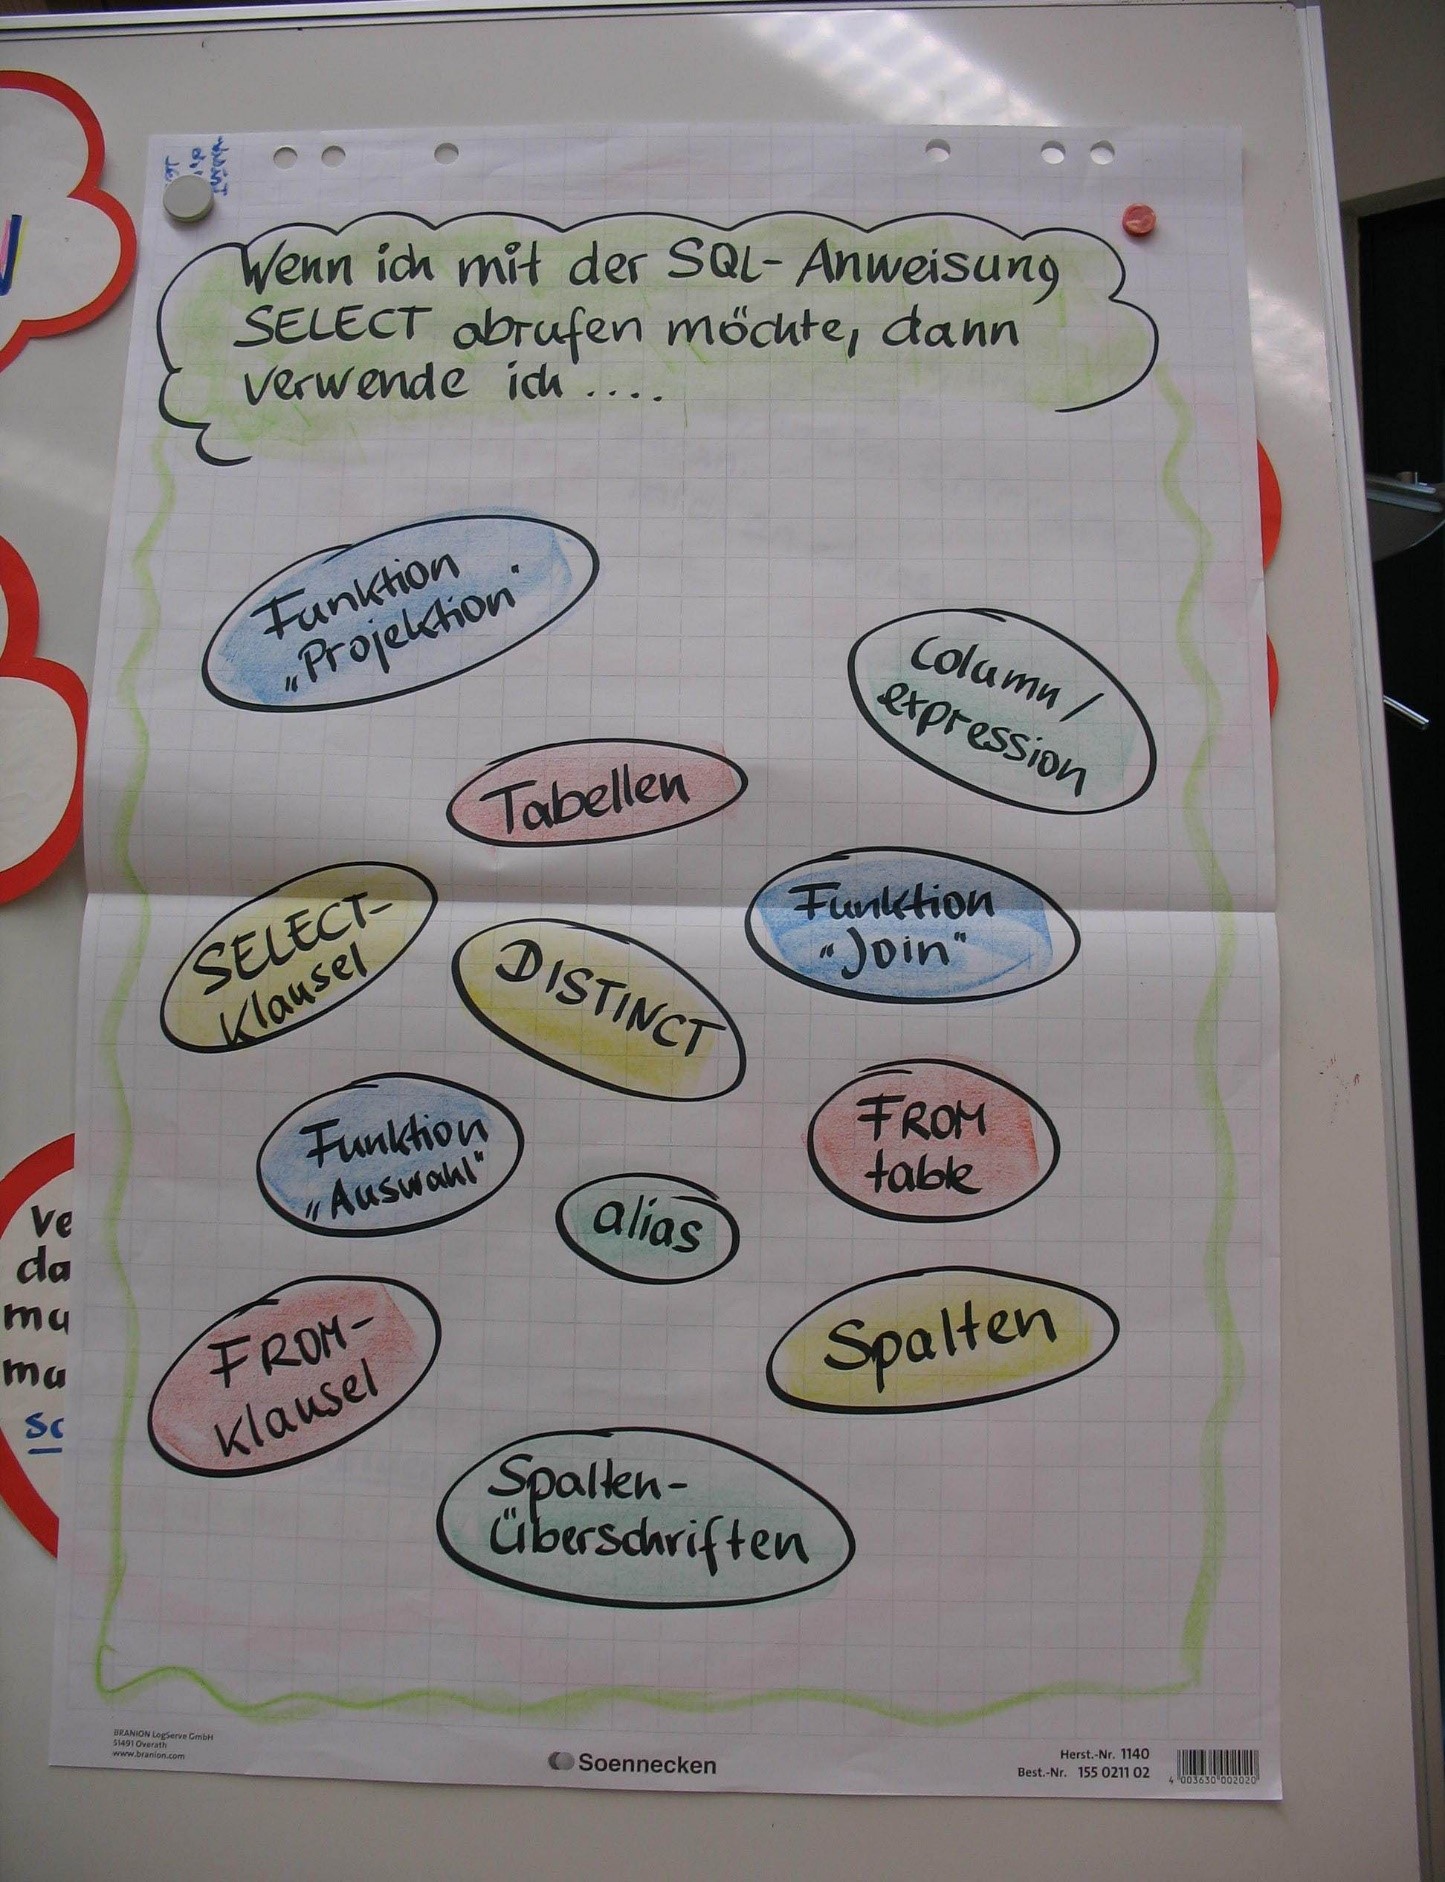 Wenn ich mit der SQL-Anweisung
SELECT abrufen möchte, dann
verwende ich ....
Funktion
„Projektion"
Column /
expression
Tabellen
SELECT-
Klausel
DISTINCT
Funktion
"Join"
Funktion
„Auswahl"
alias
FROM
table
FROM-
Klausel
Spalten
Spalten-
Überschriften
Ve
da
ma
ma
sc
BRANION LogServe GmbH
51491 Overath
www.branion.com
Soennecken
Herst.-Nr. 1140
Best.-Nr. 155 0211 02
4 003630 002020